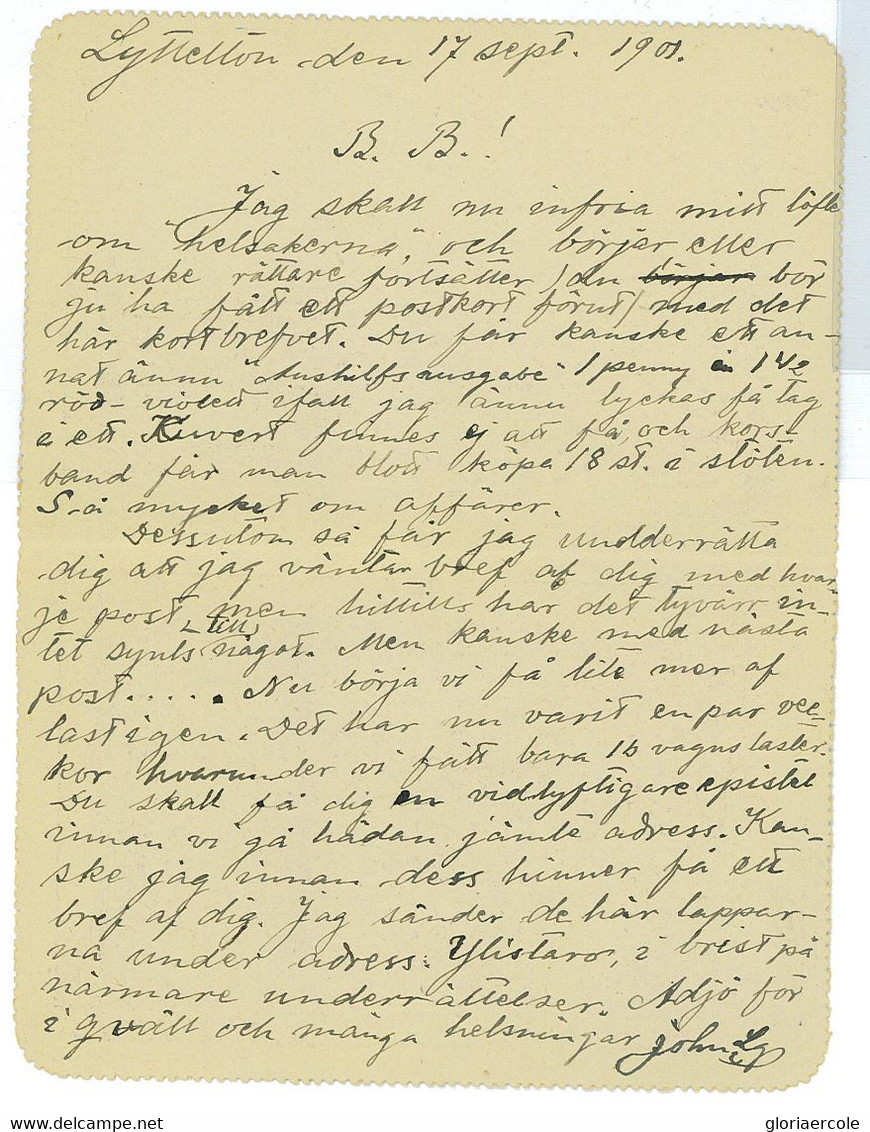 Lyttelton den 17 sept. 1901.
B. B.!
Jag skall nu infria mitt löfte
om "helsakerna", och börjar eller
kanske rättare fortsätter /du börjar bör
ju ha fått ett postkort förut/ med det
här kortbrefvet. Du får kanske ett an-
nat ännu "Aushilfsausgabe" 1 penny à 1 1/2
röd-violett ifall jag ännu lyckas få tag
i ett. Kuvert finnes ej att få, och kors-
band får man blott köpa 18 st. i stöten.
Så mycket om affärer.
Dessutom så får jag undderrätta
dig att jag väntar bref af dig med hvar-
je post, men hittills har det tyvärr in-
tet synts till något. Men kanske med nästa
post..... Nu börja vi få lite mer af
last igen. Det har nu varit en par vec-
kor hvarunder vi fått bara 16 vagnslaster.
Du skall få dig en vidlyftigare epistel
innan vi gå hädan jämte adress. Kan-
ske jag innan dess hinner få ett
bref af dig. Jag sänder de här lappar-
na under adress: Ylistaro, i brist på
närmare underrättelser. Adjö för
i qväll och många helsningar John Lg
www.delcampe.net
gloriaercole